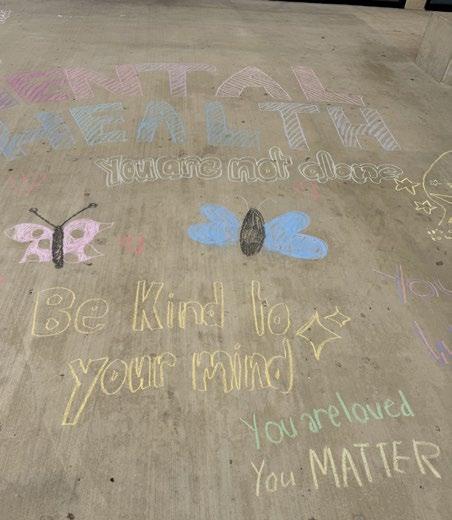 MENTAL
HEALTH
You are not alone
Be Kind to
your mind
You are loved
You MATTER
You